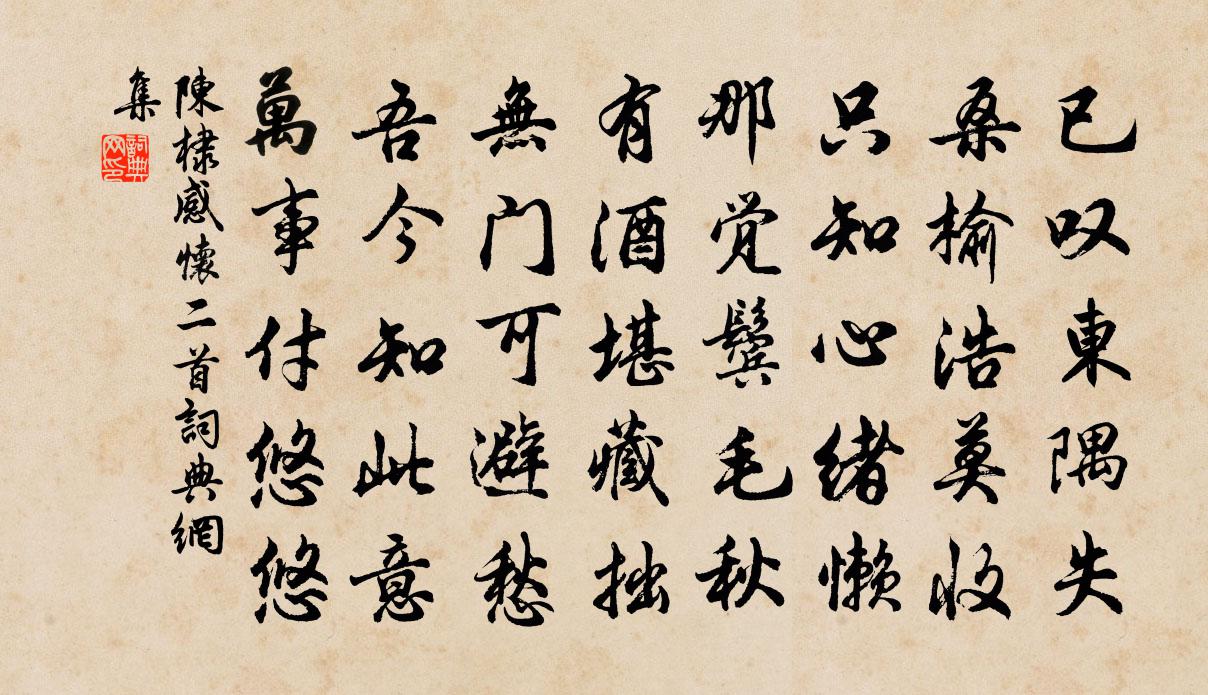 已叹東隅失
桑榆浩莫收
只知心緒懒
那觉鬓毛秋
有酒堪藏拙
無门可避愁
吾今知此意
萬事付悠悠
陳棣感懷二首詞典網
集
詞典
网印